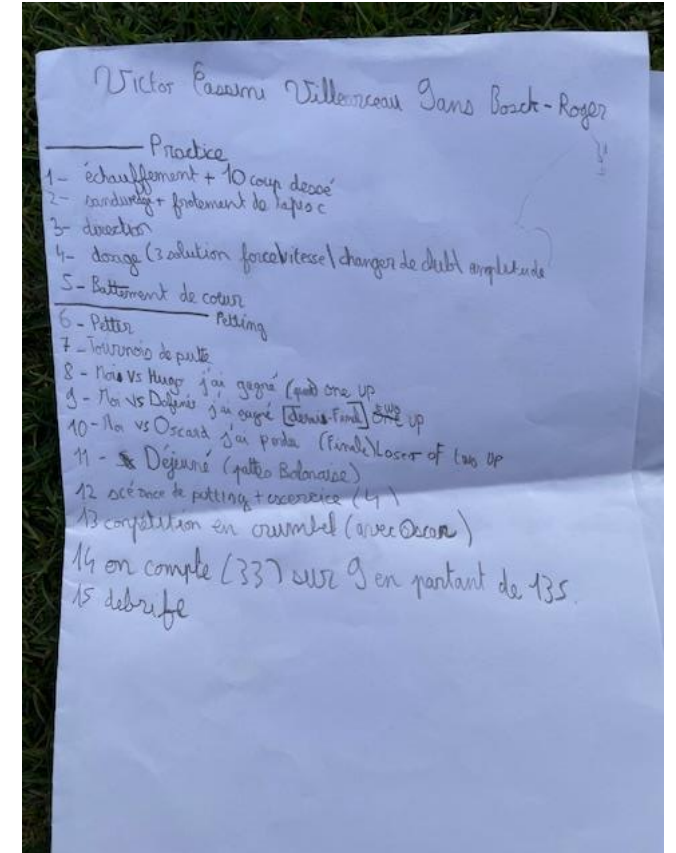 Victor Cassini Villearceau 9ans Bosch-Roger
Practice
1- échauffement + 10 coup descé
2- sandwedge + frotement de
3- direction
4- dosage (3 solution force vitesse \ changer de club \ amplitude
5- Battement de cœur
Petting
6 - Petter
7 - Tournois de putte
8 - Moi vs Hugo j'ai gagné one up
9 - Moi vs j'ai gagné [demis-Final] two up
10- Moi vs Oscard j'ai perdu (Finale) Loser of two up
11 - Déjeuné (pattes Bolonaise)
12 scéance de putting + excercice (4)
13 compétition en crumbel (avec Oscar)
14 on compte (33) sur 9 en partant de 135.
15 debrife